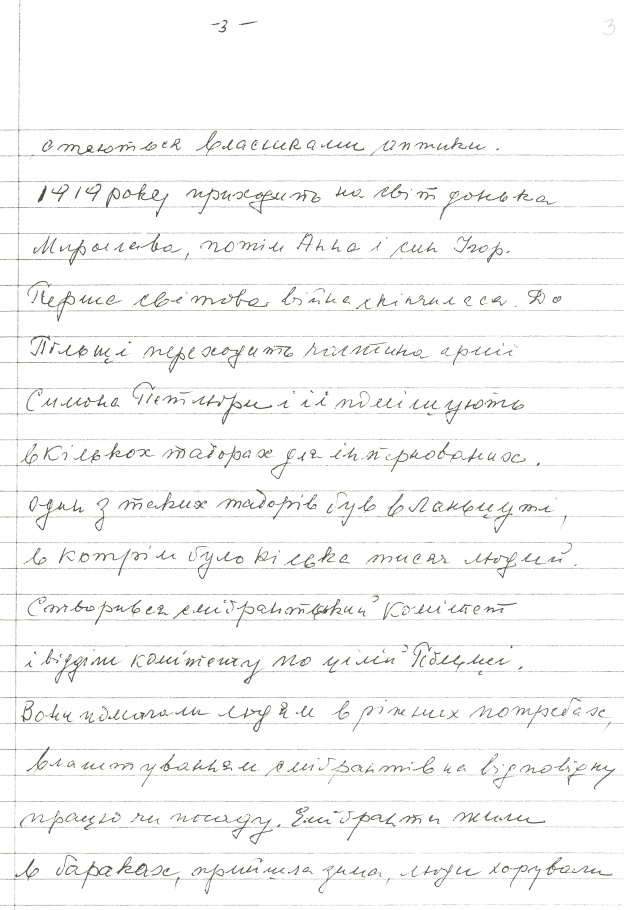 -3-
3
стаються власниками аптики.
1919 року приходить на світ донька
Мирослава, потім Анна і син Ігор.
Перша світова війна скінчилася. До
Польщі переходить частина армії
Симона Петлюри і її поміщують
в кількох таборах для інтернованих.
Один з таких таборів був в Ланьцуті,
в котрім було кілька тисяч людей.
Створився емігрантський комітет
і відділи комітету по цілій Польщі.
Вони помагали людям в ріжних потребах,
влаштуванням емігрантів на відповідну
працю чи посаду. Емігранти жили
в бараках, прийшла зима, люди хорували